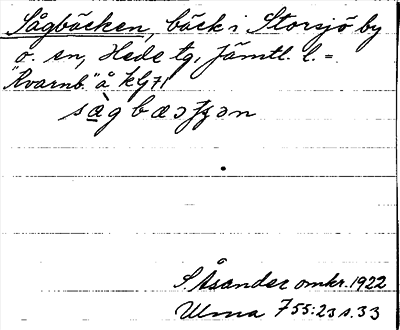 Sågbäcken, bäck i Storsjö by
o. sn, Hede tg, Jämtl. l. =
"Kvarnb." å KG71

S. Åsander omkr. 1922
Ulma 755:23 s. 33